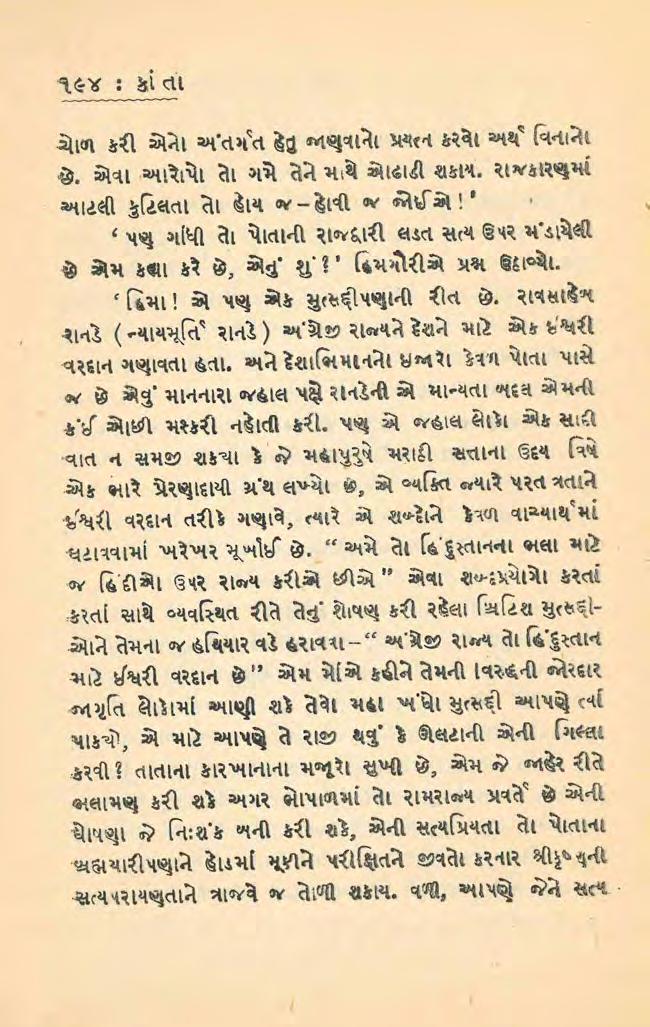 ૧૯૪ : કાંતા
ચોળ કરી એનો અંતર્ગત હેતુ જાણવાનો પ્રયત્ન કરવો અર્થ વિનાનો
છે. એવા આરોપો તો ગમે તેને માથે ઓઢાડી શકાય. રાજકારણમાં
આટલી કુટિલતા તો હોય જ – હોવી જ જોઈએ !'
‘ પણ ગાંધી તો પોતાની રાજદ્વારી લડત સત્ય ઉપર મંડાયેલી
છે એમ કહ્યા કરે છે, એનું શું ?' હિમગૌરીએ પ્રશ્ન ઉઠાવ્યો.
‘ હિમા ! એ પણ એક મુત્સદ્દીપણાની રીત છે. રાવસાહેબ
રાનડે ( ન્યાયમૂર્તિ રાનડે ) અંગ્રેજી રાજ્યને દેશને માટે એક ઈશ્વરી
વરદાન ગણાવતા હતા. અને દેશાભિમાનનો ઇજારો કેવળ પોતા પાસે
જ છે એવું માનનારા જહાલ પક્ષે રાનડેની એ માન્યતા બદલ એમની
કંઈ ઓછી મશ્કરી નહોતી કરી. પણ એ જહાલ લોકો એક સાદી
વાત ન સમજી શક્યા કે જે મહાપુરુષે મરાઠી સત્તાના ઉદય વિષે
એક ભારે પ્રેરણાદાયી ગ્રંથ લખ્યો છે, એ વ્યક્તિ જ્યારે પરતંત્રતાને
ઈશ્વરી વરદાન તરીકે ગણાવે, ત્યારે એ શબ્દોને કેવળ વાચ્યાર્થમાં
ઘટાવવામાં ખરેખર મૂર્ખાઈ છે. “ અમે તો હિંદુસ્તાનના ભલા માટે
જ હિંદીઓ ઉપર રાજ્ય કરીએ છીએ ” એવા શબ્દપ્રયોગો કરતાં
કરતાં સાથે વ્યવસ્થિત રીતે તેનું શોષણ કરી રહેલા બ્રિટિશ મુત્સદ્દી-
ઓને તેમના જ હથિયાર વડે હરાવવા – “ અંગ્રેજી રાજ્ય તો હિંદુસ્તાન
માટે ઈશ્વરી વરદાન છે” એમ મોંએ કહીને તેમની વિરુદ્ધની જોરદાર
જાગૃતિ લોકોમાં આણી શકે તેવો મહા ખંધો મુત્સદ્દી આપણે ત્યાં
પાક્યો, એ માટે આપણે તે રાજી થવું કે ઊલટાની એની ગિલ્લા
કરવી ? તાતાના કારખાનાના મજૂરો સુખી છે, એમ જે જાહેર રીતે
ભલામણ કરી શકે અગર ભોપાળમાં તો રામરાજ્ય પ્રવર્તે છે એની
ઘોષણા જે નિઃશંક બની કરી શકે, એની સત્યપ્રિયતા તો પોતાના
બ્રહ્મચારીપણાને હોડમાં મૂકીને પરીક્ષિતને જીવતો કરનાર શ્રીકૃષ્ણની
સત્યપરાયણતાને ત્રાજવે જ તોળી શકાય. વળી, આપણે જેને સત્ય